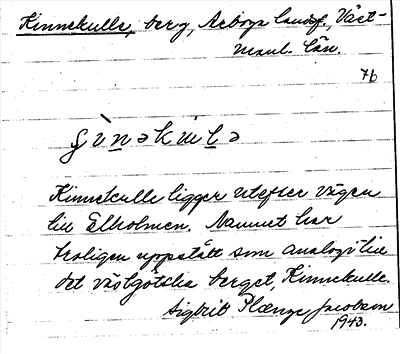 Kinnekulle, berg, Arboga landsf., Väst-
manl. län.
76
Kinnekulle ligger utefter vägen
till Elholmen. Namnet har
troligen uppstått som analogi till
det västgötska berget, Kinnekulle.
Sigbrit Plænge Jacobson
1943.